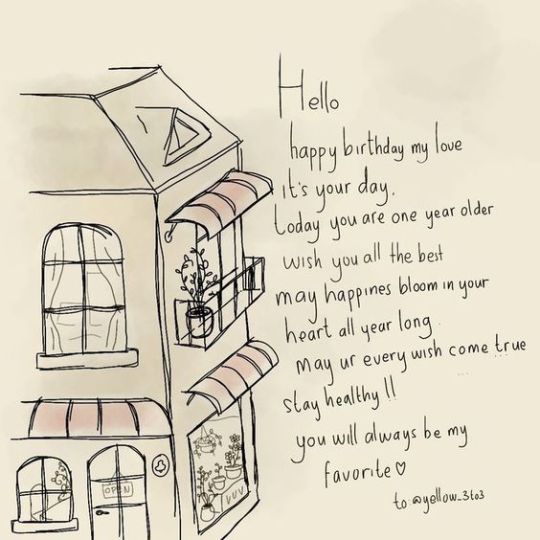 Hello
happy birthday my love
it's your day.
today you are one year older
wish you all the best
may happines bloom in your
heart all year long.
may ur every wish come true
stay healthy !!
you will always be my
favorite ♡
to: @yellow_3to3
OPEN